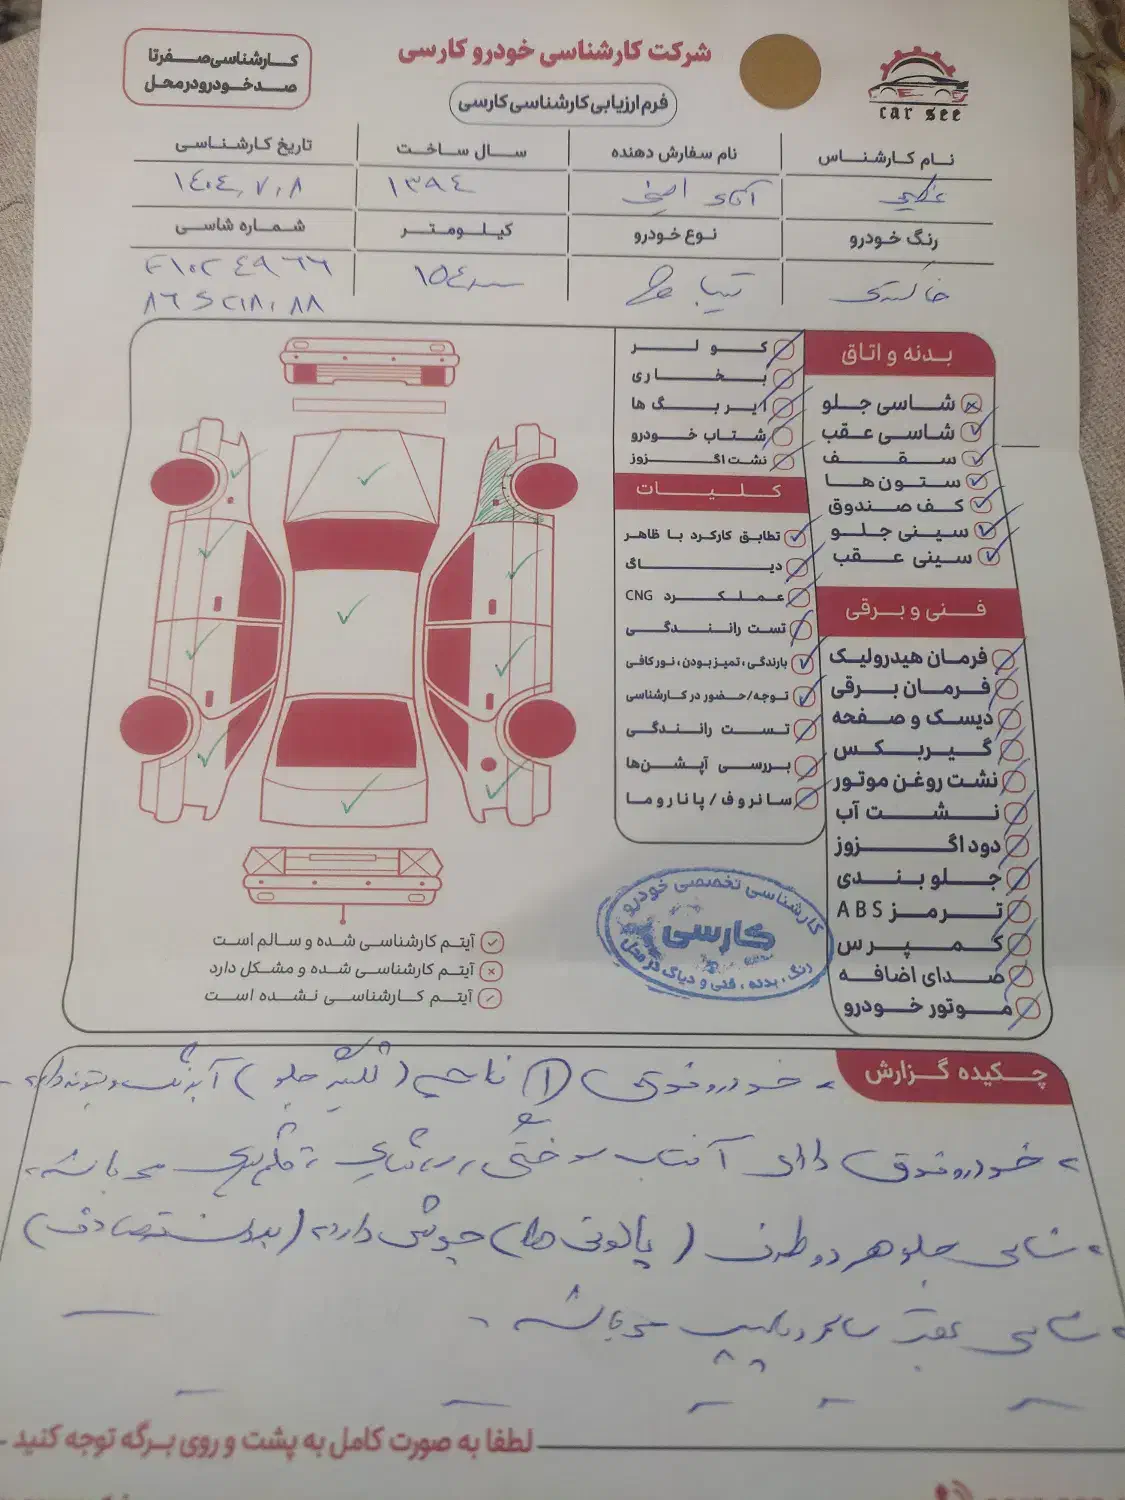 شرکت کارشناسی خودرو کارسی
کارشناسی صفر تا
صد خودرو در محل
فرم ارزیابی کارشناسی کارسی
car see
نام کارشناس
نام سفارش دهنده
سال ساخت
تاریخ کارشناسی
آقای
۱۳۹۴
۱۴۰۴,۷,۸
رنگ خودرو
نوع خودرو
کیلومتر
شماره شاسی
خاکستری
تیبا
بدنه و اتاق
شاسی جلو
شاسی عقب
سقف
ستون ها
کف صندوق
سینی جلو
سینی عقب
فنی و برقی
فرمان هیدرولیک
فرمان برقی
دیسک و صفحه
گیربکس
نشت روغن موتور
نشت آب
دود اگزوز
جلو بندی
ترمز ABS
کمپرس
صدای اضافه
موتور خودرو
کولر
بخاری
ایربگ ها
شتاب خودرو
نشت اگزوز
کلیات
تطابق کارکرد با ظاهر
دیاگ
عملکرد CNG
تست رانندگی
بارندگی، تمیز بودن، نور کافی
توجه/حضور در کارشناسی
تست رانندگی
بررسی آپشن‌ها
سانروف/پاناروما
آیتم کارشناسی شده و سالم است
آیتم کارشناسی شده و مشکل دارد
آیتم کارشناسی نشده است
کارشناسی تخصصی خودرو
کارسی
رنگ، بدنه، فنی و دیاگ در محل
چکیده گزارش
خودرو فوق (۱) ناحیه (گلگیر جلو) آبرنگ و بتونه دارد
خودرو فوق دارای آفتاب سوختگی، و قلم گیری می باشد
شاسی جلو هر دو طرف (پالونی ها) جوش دارد (بدون تصادف)
شاسی عقب سالم و پلمپ می باشد
لطفا به صورت کامل به پشت و روی برگه توجه کنید